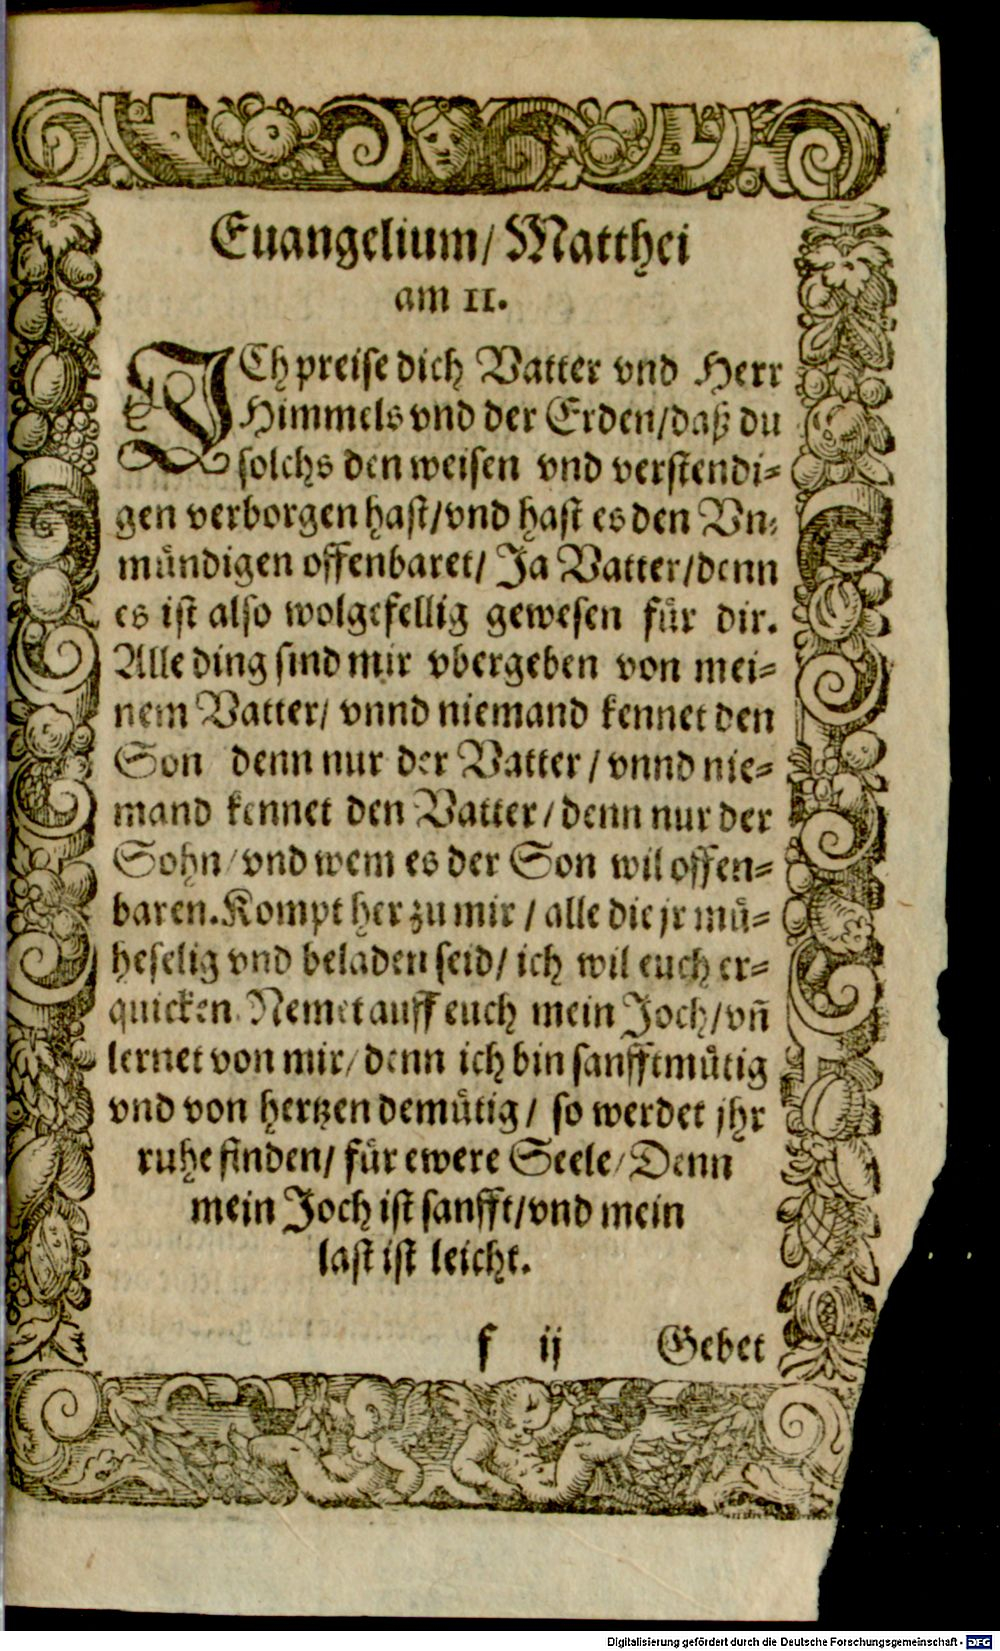 Euangelium/ Matthei
am 11.
ICh preise dich Vatter vnd Herr
Himmels vnd der Erden/daß du
solchs den weisen vnd verstendi-
gen verborgen hast/vnd hast es den Vn-
mündigen offenbaret/ Ja Vatter/denn
es ist also wolgefellig gewesen für dir.
Alle ding sind mir vbergeben von mei-
nem Vatter/ vnnd niemand kennet den
Son denn nur der Vatter / vnnd nie-
mand kennet den Vatter/denn nur der
Sohn/vnd wem es der Son wil offen-
baren. Kompt her zu mir / alle die jr mü-
heselig vnd beladen seid/ ich wil euch er-
quicken. Nemet auff euch mein Joch/vñ
lernet von mir/denn ich bin sanfftmütig
vnd von hertzen demütig/ so werdet jhr
ruhe finden/ für ewere Seele/Denn
mein Joch ist sanfft/vnd mein
last ist leicht.
f ij Gebet
Digitalisierung gefördert durch die Deutsche Forschungsgemeinschaft - DFG